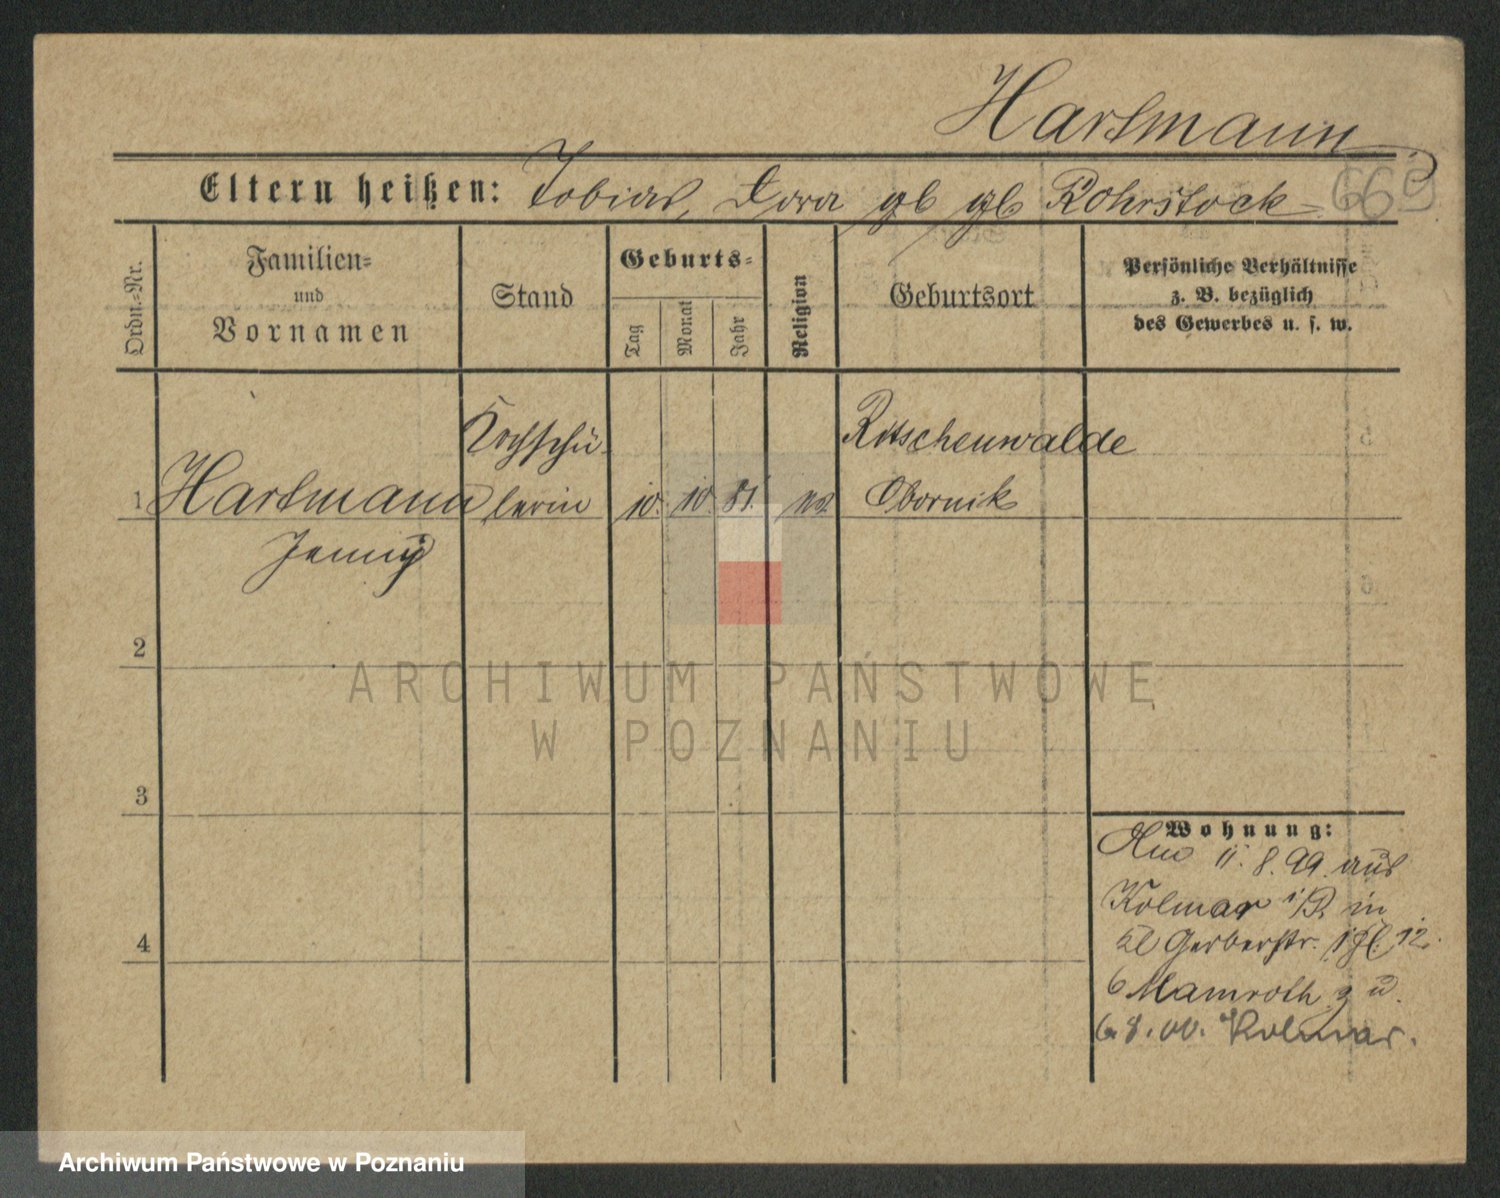 Hartmann
Eltern heißen: Tobias, Dora gb gb Rohrstock
Ordn.-Nr.
Familien-
und
Vornamen
Stand
Geburts-
Tag
Monat
Jahr
Religion
Geburtsort
Persönliche Verhältnisse
z. B. bezüglich
des Gewerbes u. s. w.
Kochschü- Ritschenwalde
1 Hartmann lerin 10. 10. 81. Obornik
Jenny
2
3
4
Wohnung:
11. 8. 99. aus
Kolmar i/P. in
Gerberstr. 12.
b Mamroth
6. 8. 00. Kolmar.
ARCHIWUM PAŃSTWOWE
W POZNANIU
Archiwum Państwowe w Poznaniu